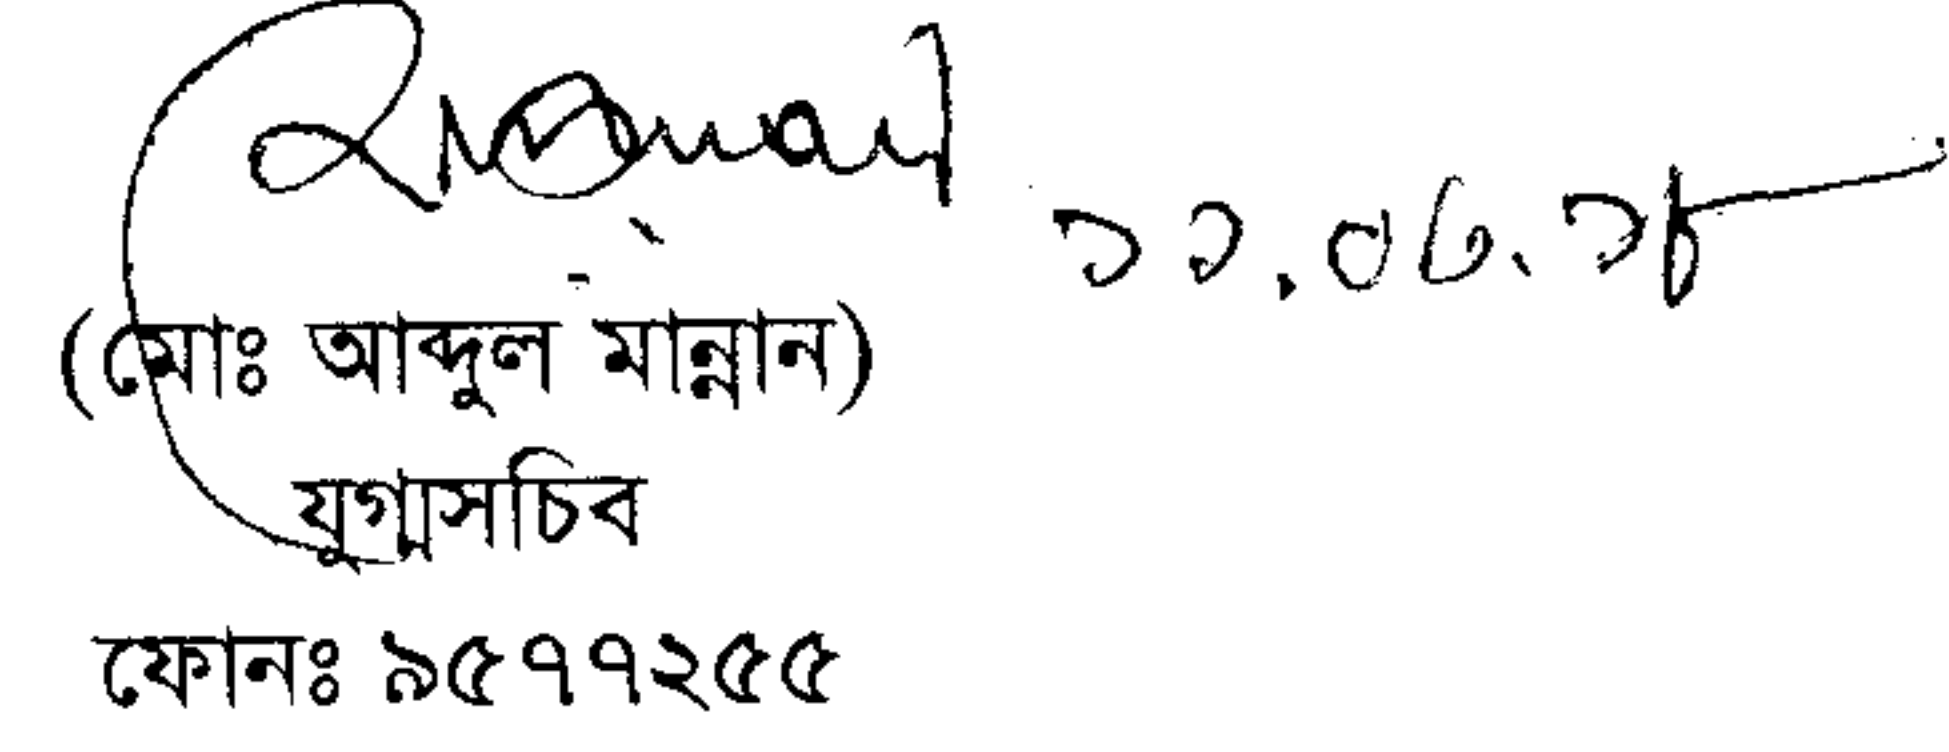 ১১.০৬.১৮
(মোঃ আব্দুল মান্নান)
যুগ্মসচিব
ফোনঃ ৯৫৭৭২৫৫